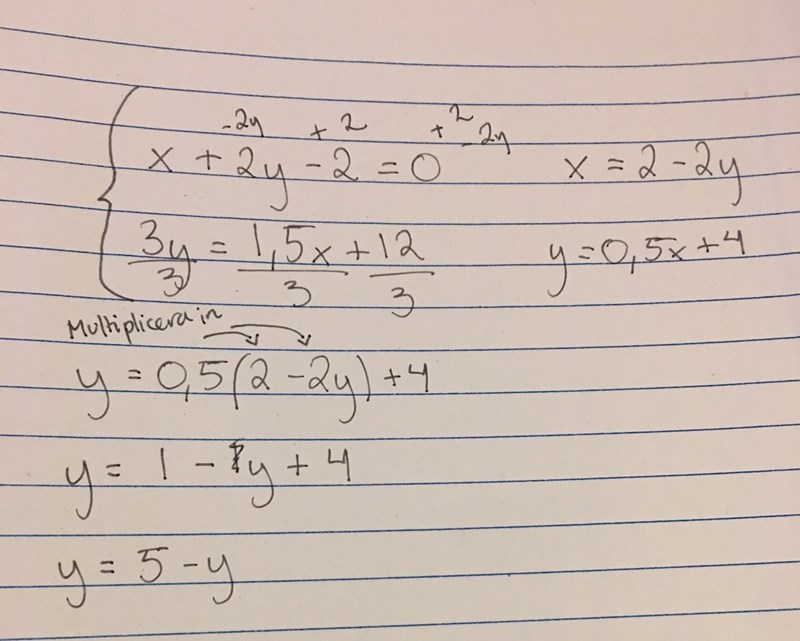 -2y + 2 + 2 - 2y
x + 2y - 2 = 0 x = 2 - 2y
3y/3 = 1,5x/3 + 12/3 y = 0,5x + 4
Multiplicera in
y = 0,5(2 - 2y) + 4
y = 1 - 1y + 4
y = 5 - y